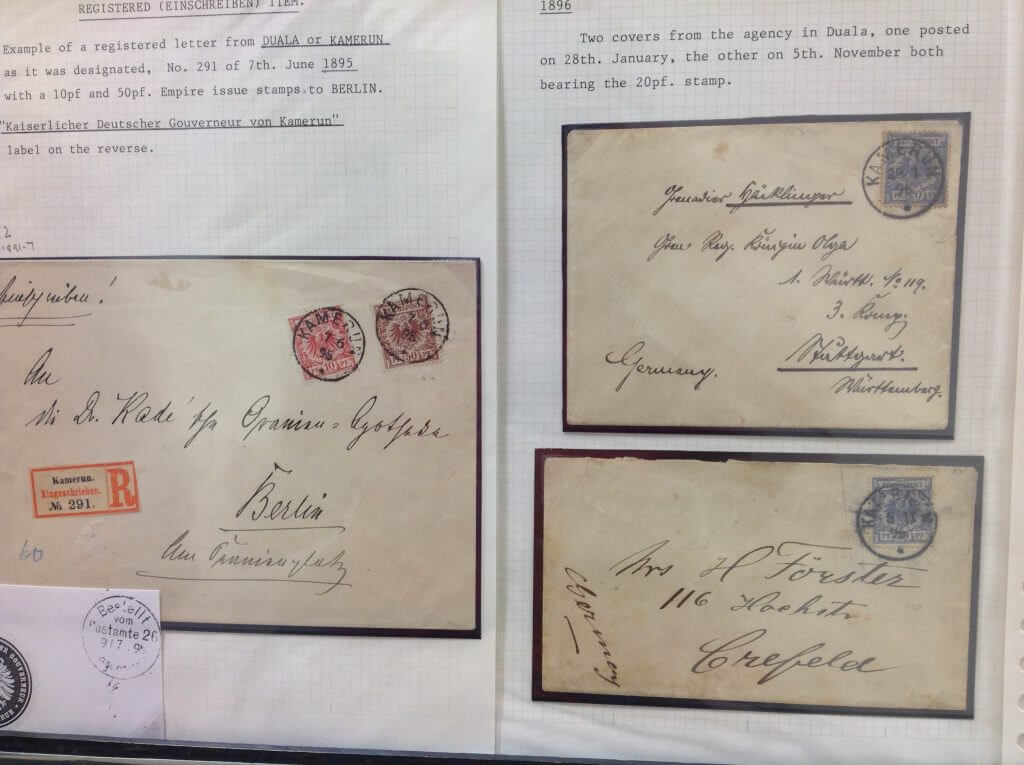 REGISTERED (EINSCHREIBEN) ITEM.
Example of a registered letter from DUALA or KAMERUN
as it was designated, No. 291 of 7th. June 1895
with a 10pf and 50pf. Empire issue stamps to BERLIN.
"Kaiserlicher Deutscher Gouverneur von Kamerun"
label on the reverse.
2
1891-7
KAMERUN
7 6
95
10 PF
KAMERUN
50 PF
An
die Dr. Kade'sche Oranien-Apotheke
Berlin
Am Oranienplatz
Kamerun.
Eingeschrieben.
No. 291.
R
60
Bestellt
vom
Postamte 26
GOUVERNEUR
1896
Two covers from the agency in Duala, one posted
on 28th. January, the other on 5th. November both
bearing the 20pf. stamp.
KAMERUN
Grenadier Häcklinger
Gren. Reg. Königin Olga
1. Württ. No 119.
3. Komp.
Stuttgart.
Württemberg.
Germany.
KAMERUN
Mrs H Förster
116 Hochstr
Crefeld
Germany